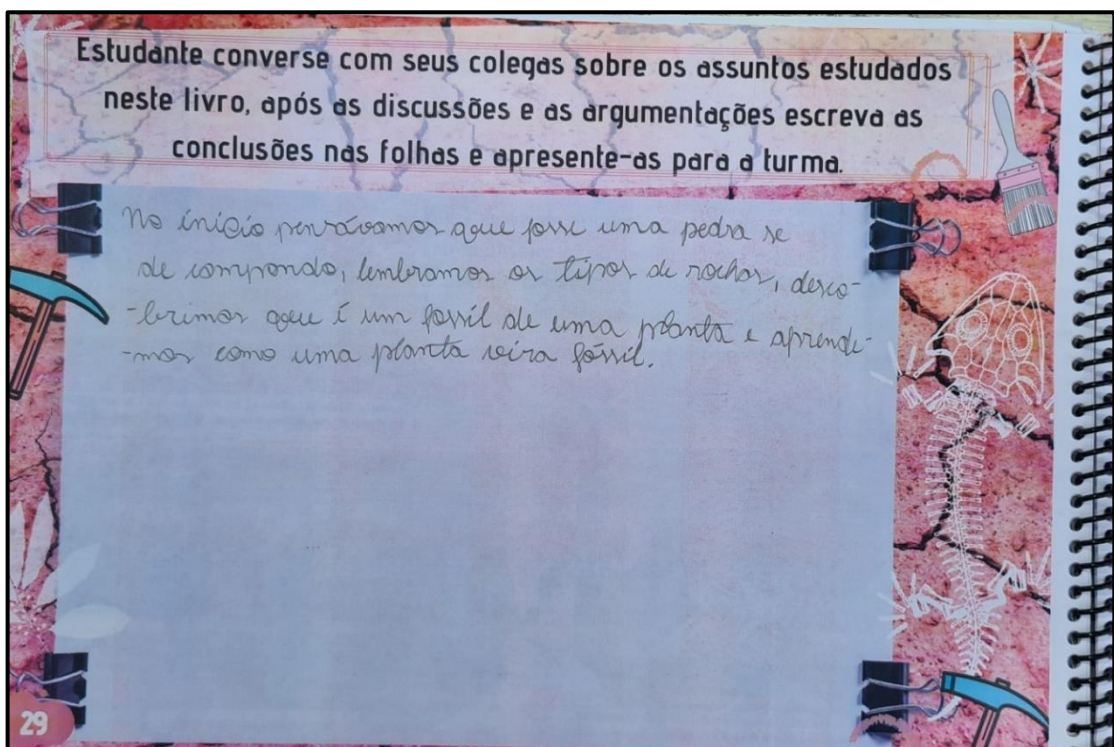 Estudante converse com seus colegas sobre os assuntos estudados
neste livro, após as discussões e as argumentações escreva as
conclusões nas folhas e apresente-as para a turma.
No início pensávamos que fosse uma pedra se
de compondo, lembramos os tipos de rochas, desco-
-brimos que é um fóssil de uma planta e aprende-
-mos como uma planta vira fóssil.
29